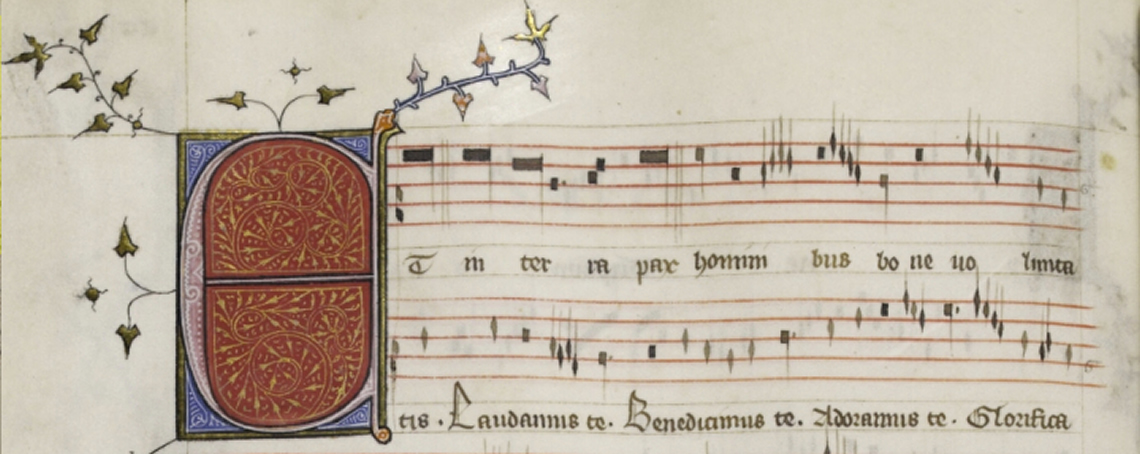 ET in ter ra pax homini bus bo ne uo lunta
tis. Laudamus te. Benedicimus te. Adoramus te. Glorifica